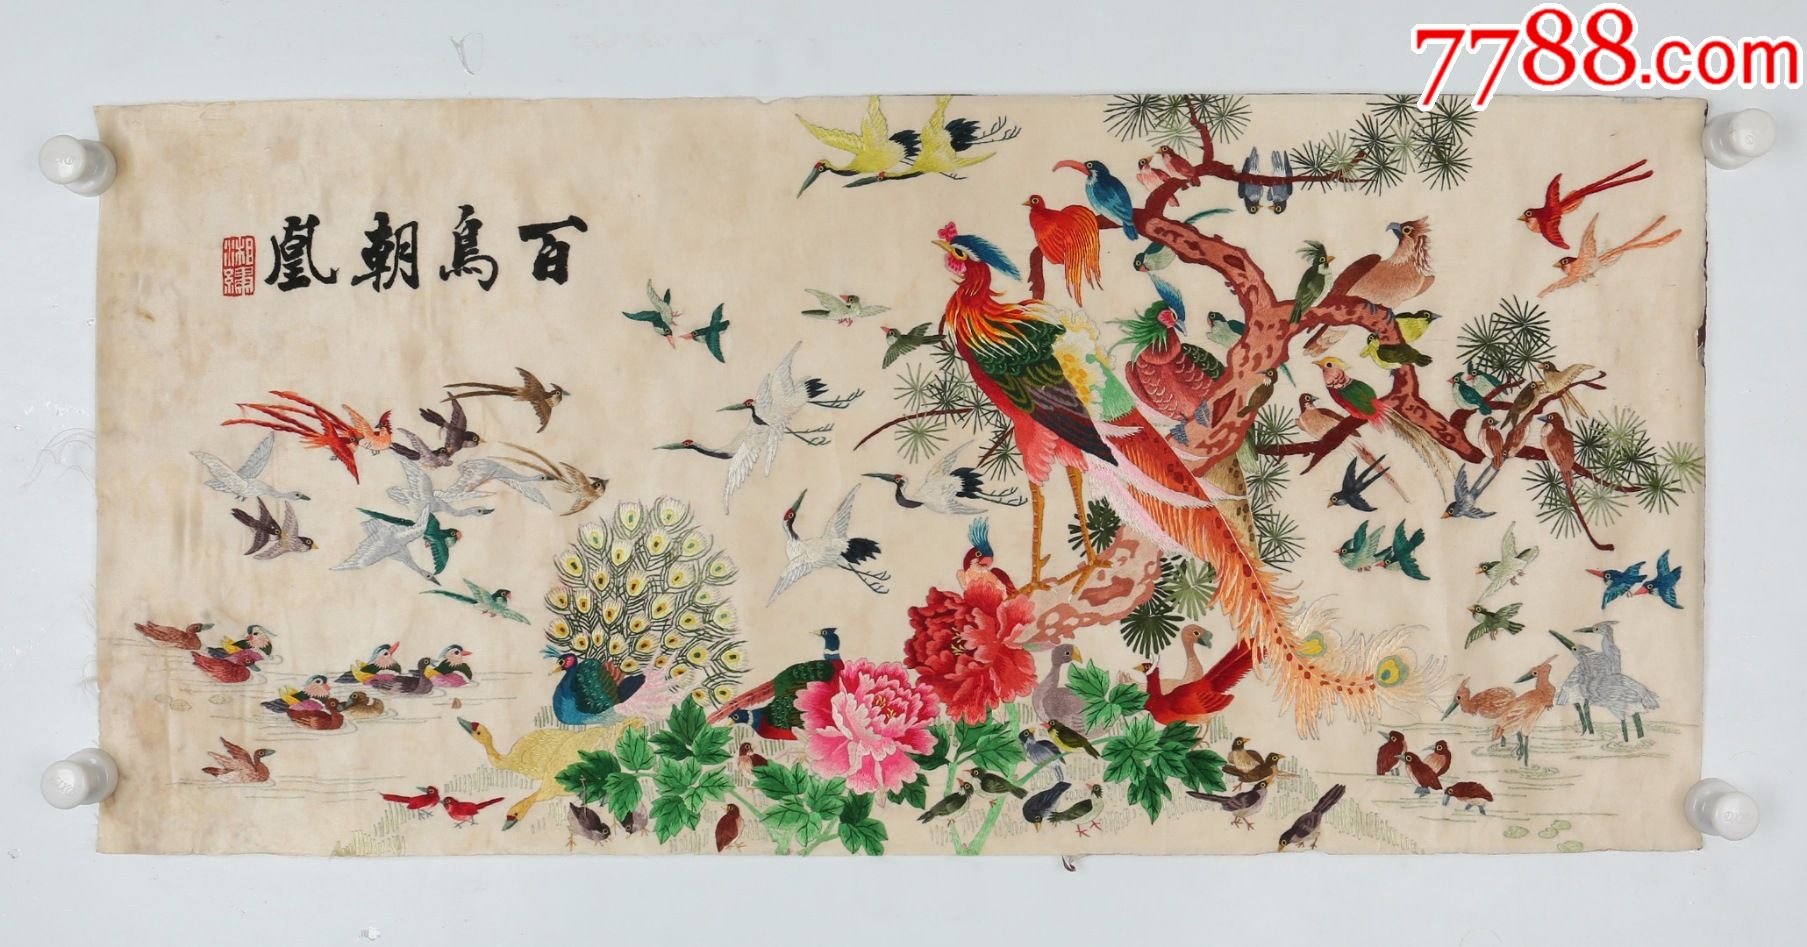 7788.com
百鳥朝凰
湘繡